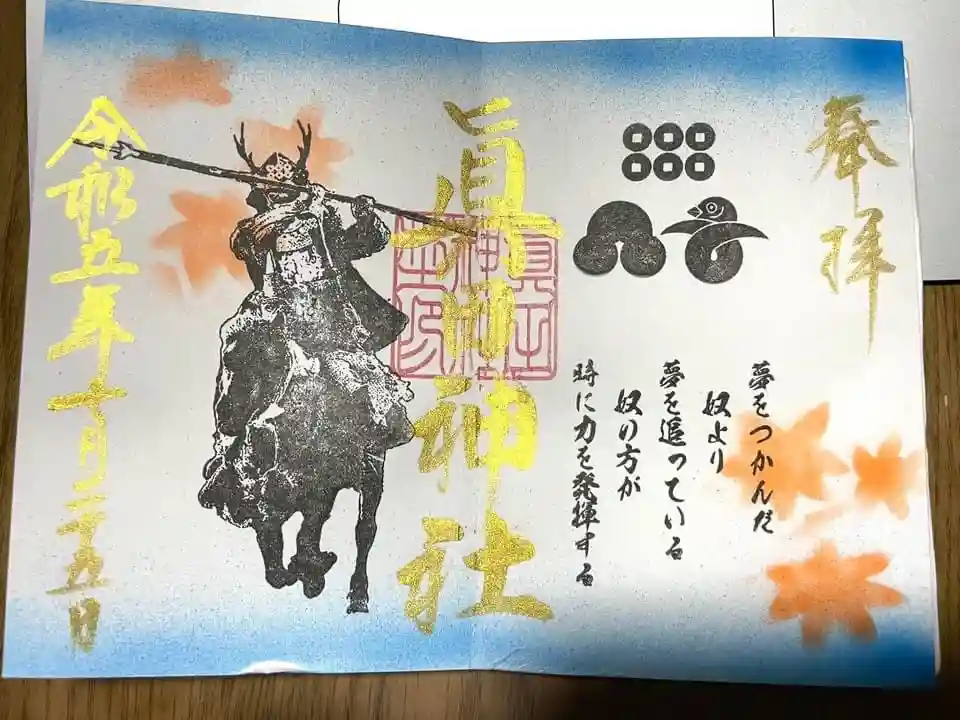 奉拝
夢をつかんだ
奴より
夢を追っている
奴の方が
時に力を発揮する
眞田神社
令和五年十月二十五日